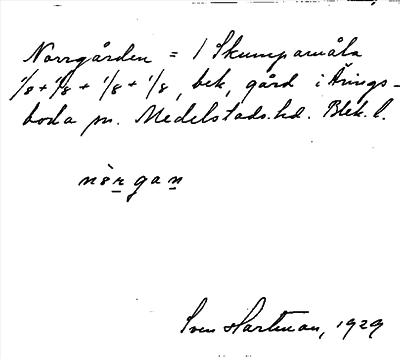 Norrgården = / Skumpamåla
1/8 + 1/8 + 1/8 + 1/8, bek. gård i Årings-
boda sn. Medelstads hd. Blek. l.
nòrgan
Sven Hartman, 1929